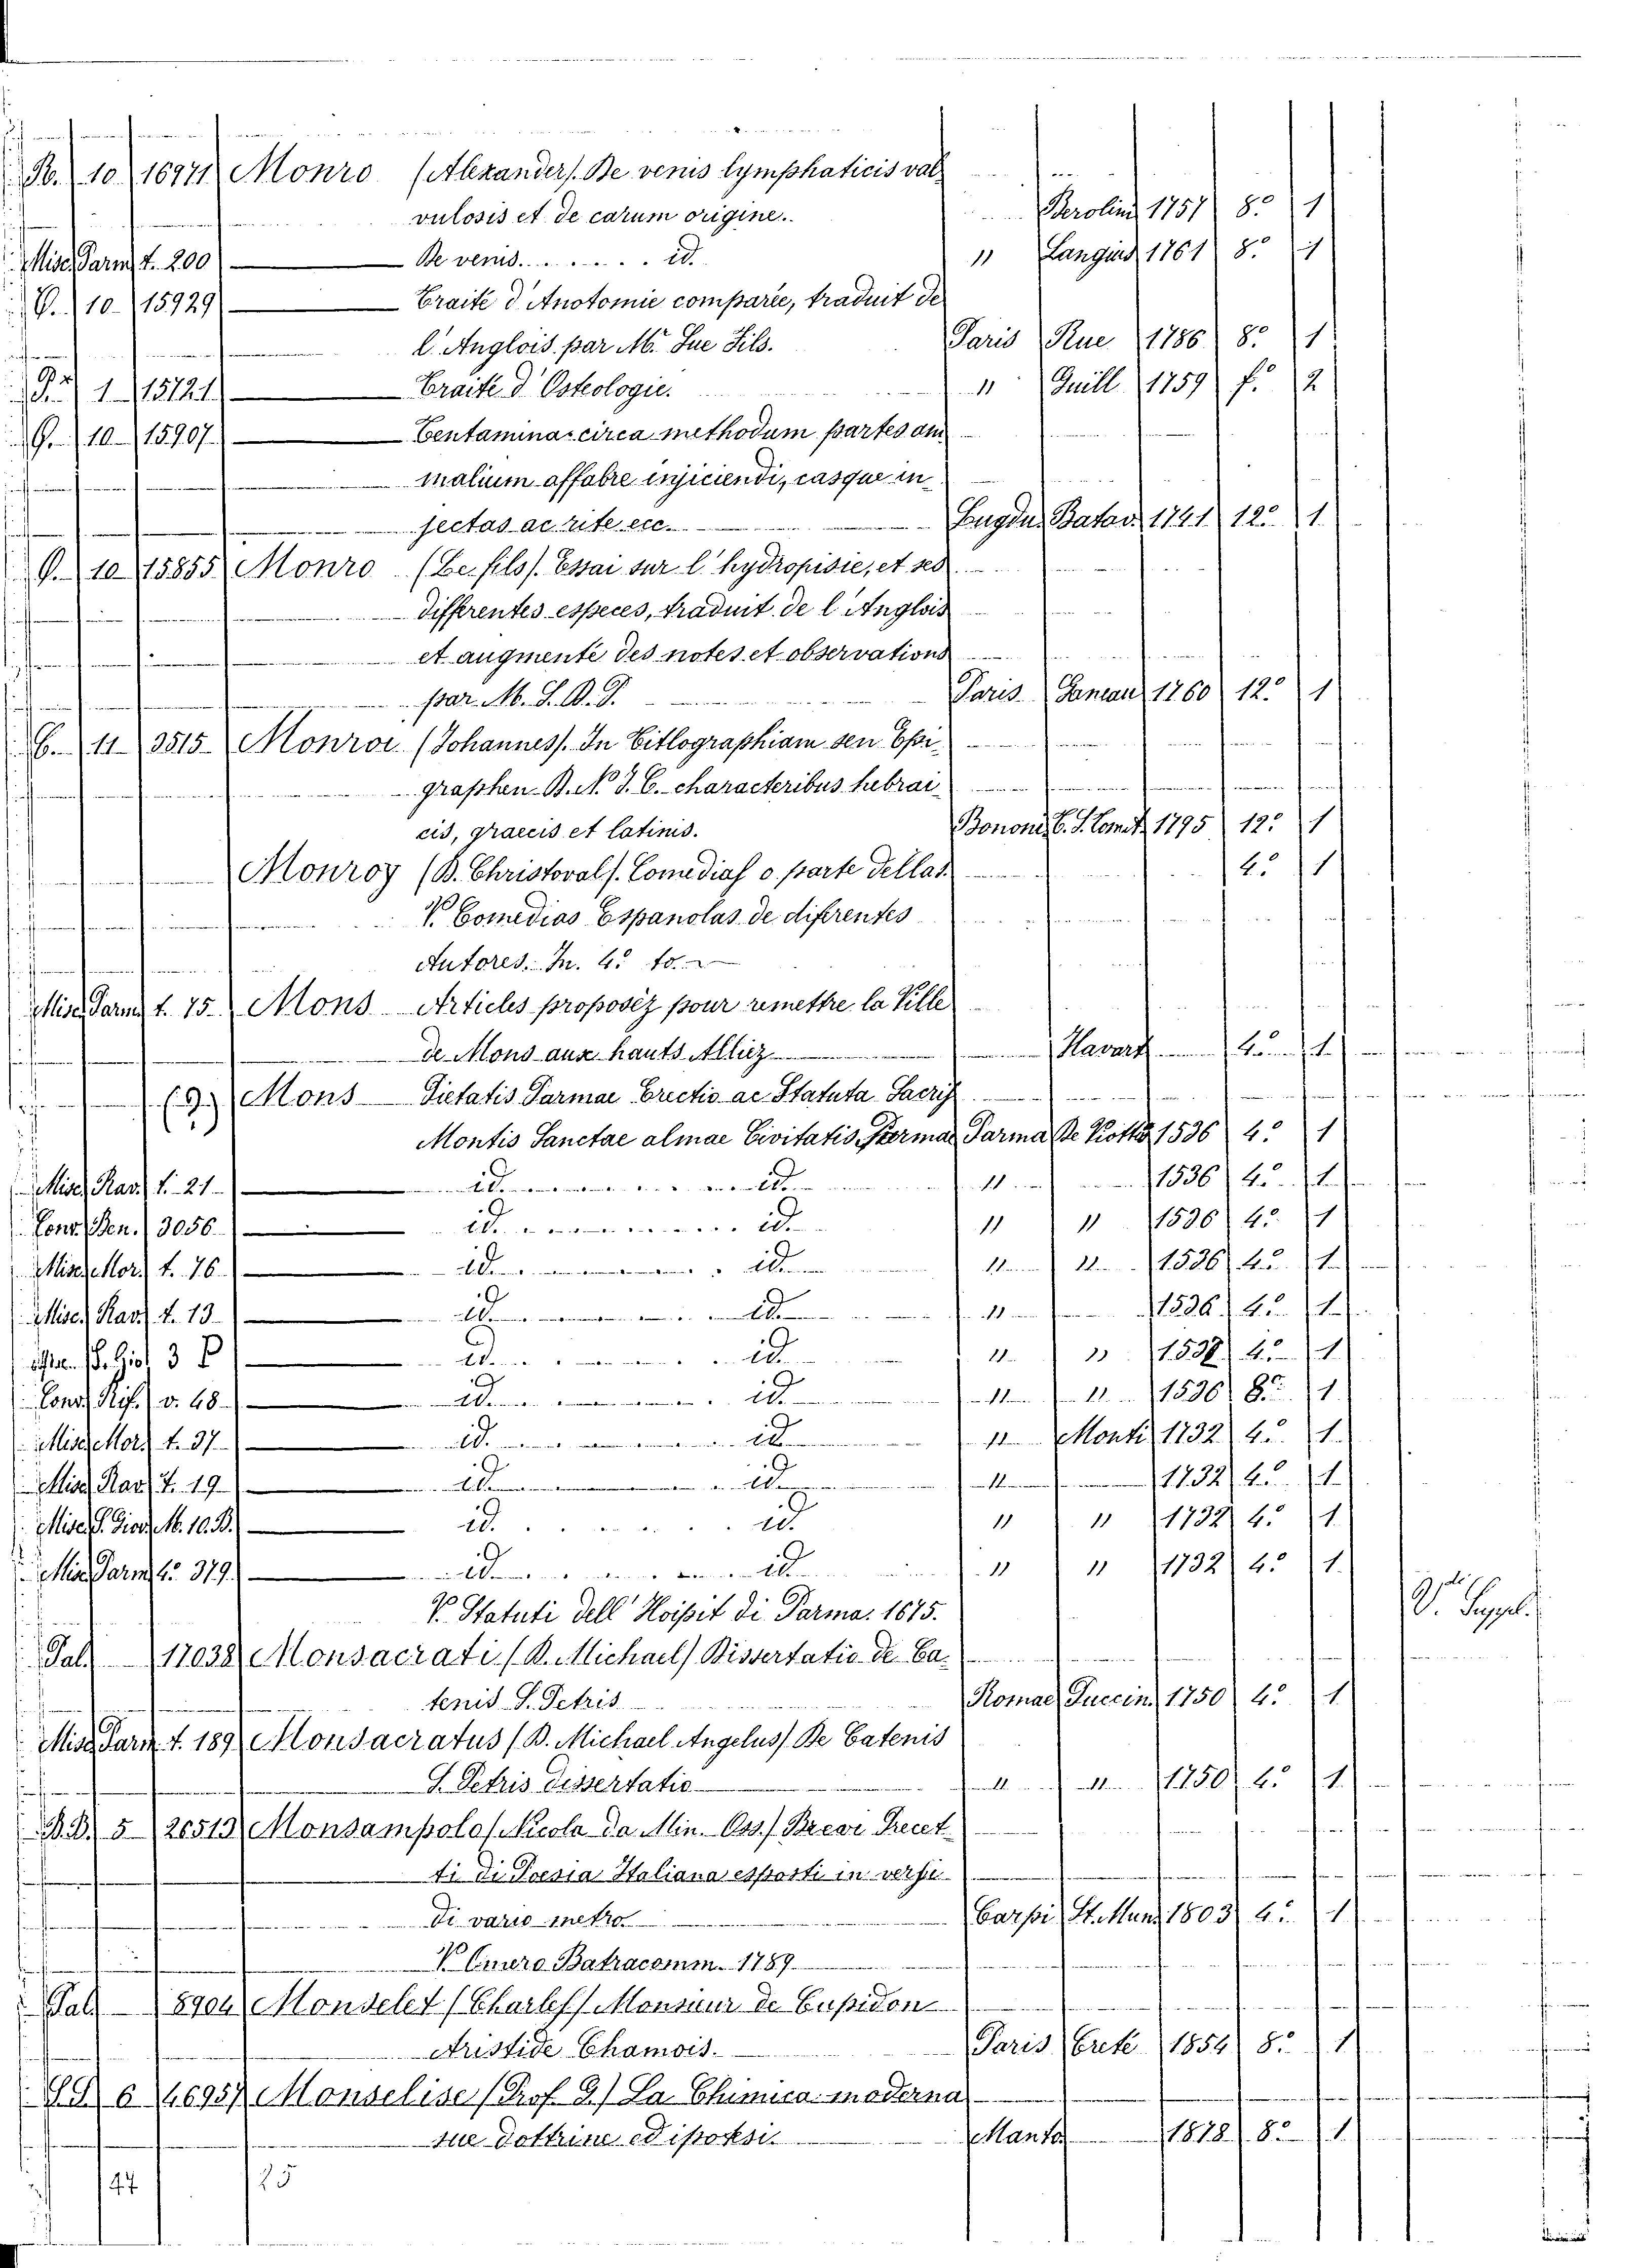 B. 10 16971 Monro (Alexander). De venis lymphaticis val
vulosis et de carum origine. Berolini 1757 8.° 1
Misc. Parm. t. 200 — De venis. . . . . . . id. " Langius 1761 8.° 1
G. 10 15929 — Traité d'Anotomie comparée, traduit de
l'Anglois par M. Sue Fils. Paris Rue 1786 8.° 1
1 15721 — Traité d'Osteologie. " Guill 1759 f.° 2
G. 10 15907 — Tentamina circa methodum partes ani
malium affabre injiciendi, easque in
jectas ac rite etc. Lugdu. Batav. 1741 12.° 1
G. 10 15855 Monro (Le fils). Essai sur l'hydropisie, et ses
differentes especes, traduit de l'Anglois
et augmenté des notes et observations
par M. S. D. P. Paris Ganeau 1760 12.° 1
C. 11 3515 Monroi (Johannes). In Titlographiam seu Epi
graphen B. N. J. C. characteribus hebrai
cis, graecis et latinis. Bononi. C. S. Tomit. 1795 12.° 1
Monroy (D. Christoval). Comedias o parte dellas 4.° 1
V. Comedias Espanolas de diferentes
Autores. In. 4.° to.
Misc. Parm. t. 75. Mons Articles proposéz pour remettre la Ville
de Mons aux hauts Alliez Havart 4.° 1
(9.) Mons Pietatis Parmae Erectio ac Statuta Sacri
Montis Sanctae almae Civitatis Parmae Parma De Viotto 1536 4.° 1
Misc. Rav. t. 21 — id. id. " 1536 4.° 1
Conv. Ben. 3056 — id. id. " " 1536 4.° 1
Misc. Mor. t. 76 — id. id. " " 1536 4.° 1
Misc. Rav. t. 13 — id. id. " 1536 4.° 1
3 P — id. id. " " 1538 4.° 1
Conv. Rif. v. 48 — id. id. " " 1536 8.° 1
Misc. Mor. t. 37 — id. id. " Monti 1732 4.° 1
Misc. Rav. t. 19 — id. id. " 1732 4.° 1
Misc. S. Giov. M. 10. B. — id. id. " " 1732 4.° 1
Misc. Parm. 4.° 379 — id. id. " " 1732 4.° 1
V. Statuti dell' Hospit di Parma. 1675. V. Suppl.
Pal. 17038 Monsacrati (D. Michael) Dissertatio de Ca
tenis S. Petris Romae Puccin. 1750 4.° 1
Misc. Parm. t. 189 Monsacratus (D. Michael Angelus) De Catenis
S. Petris dissertatio " " 1750 4.° 1
B.B. 5 26513 Monsampolo (Nicola da Min. Oss.) Brevi Precet
ti di Poesia Italiana esposti in versi
di vario metro Carpi St. Mun. 1803 4.° 1
V. Omero Batracomm. 1789
Pal. 8904 Monselet (Charles) Monsieur de Cupidon
Aristide Chamois. Paris Crete 1854 8.° 1
6 46957 Monselise (Prof. G.) La Chimica moderna
sue dottrine ed ipotesi. Manto. 1878 8.° 1
47 25